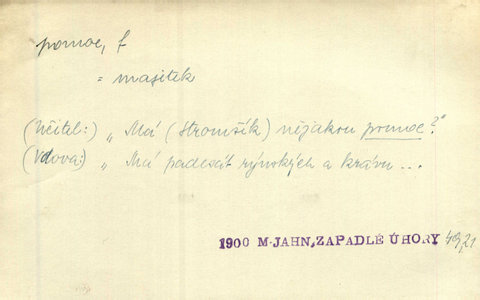 pomoc, f
= majetek
(Učitel:) „Má (Stromšík) nějakou pomoc?"
(Vdova:) „Má padesát rýnských a krávu ...
1900 M. JAHN, ZAPADLÉ ÚHORY 49,21